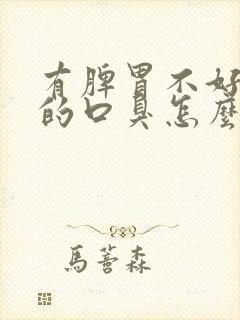 有脾胃不好
的口臭怎麼
馬薈森